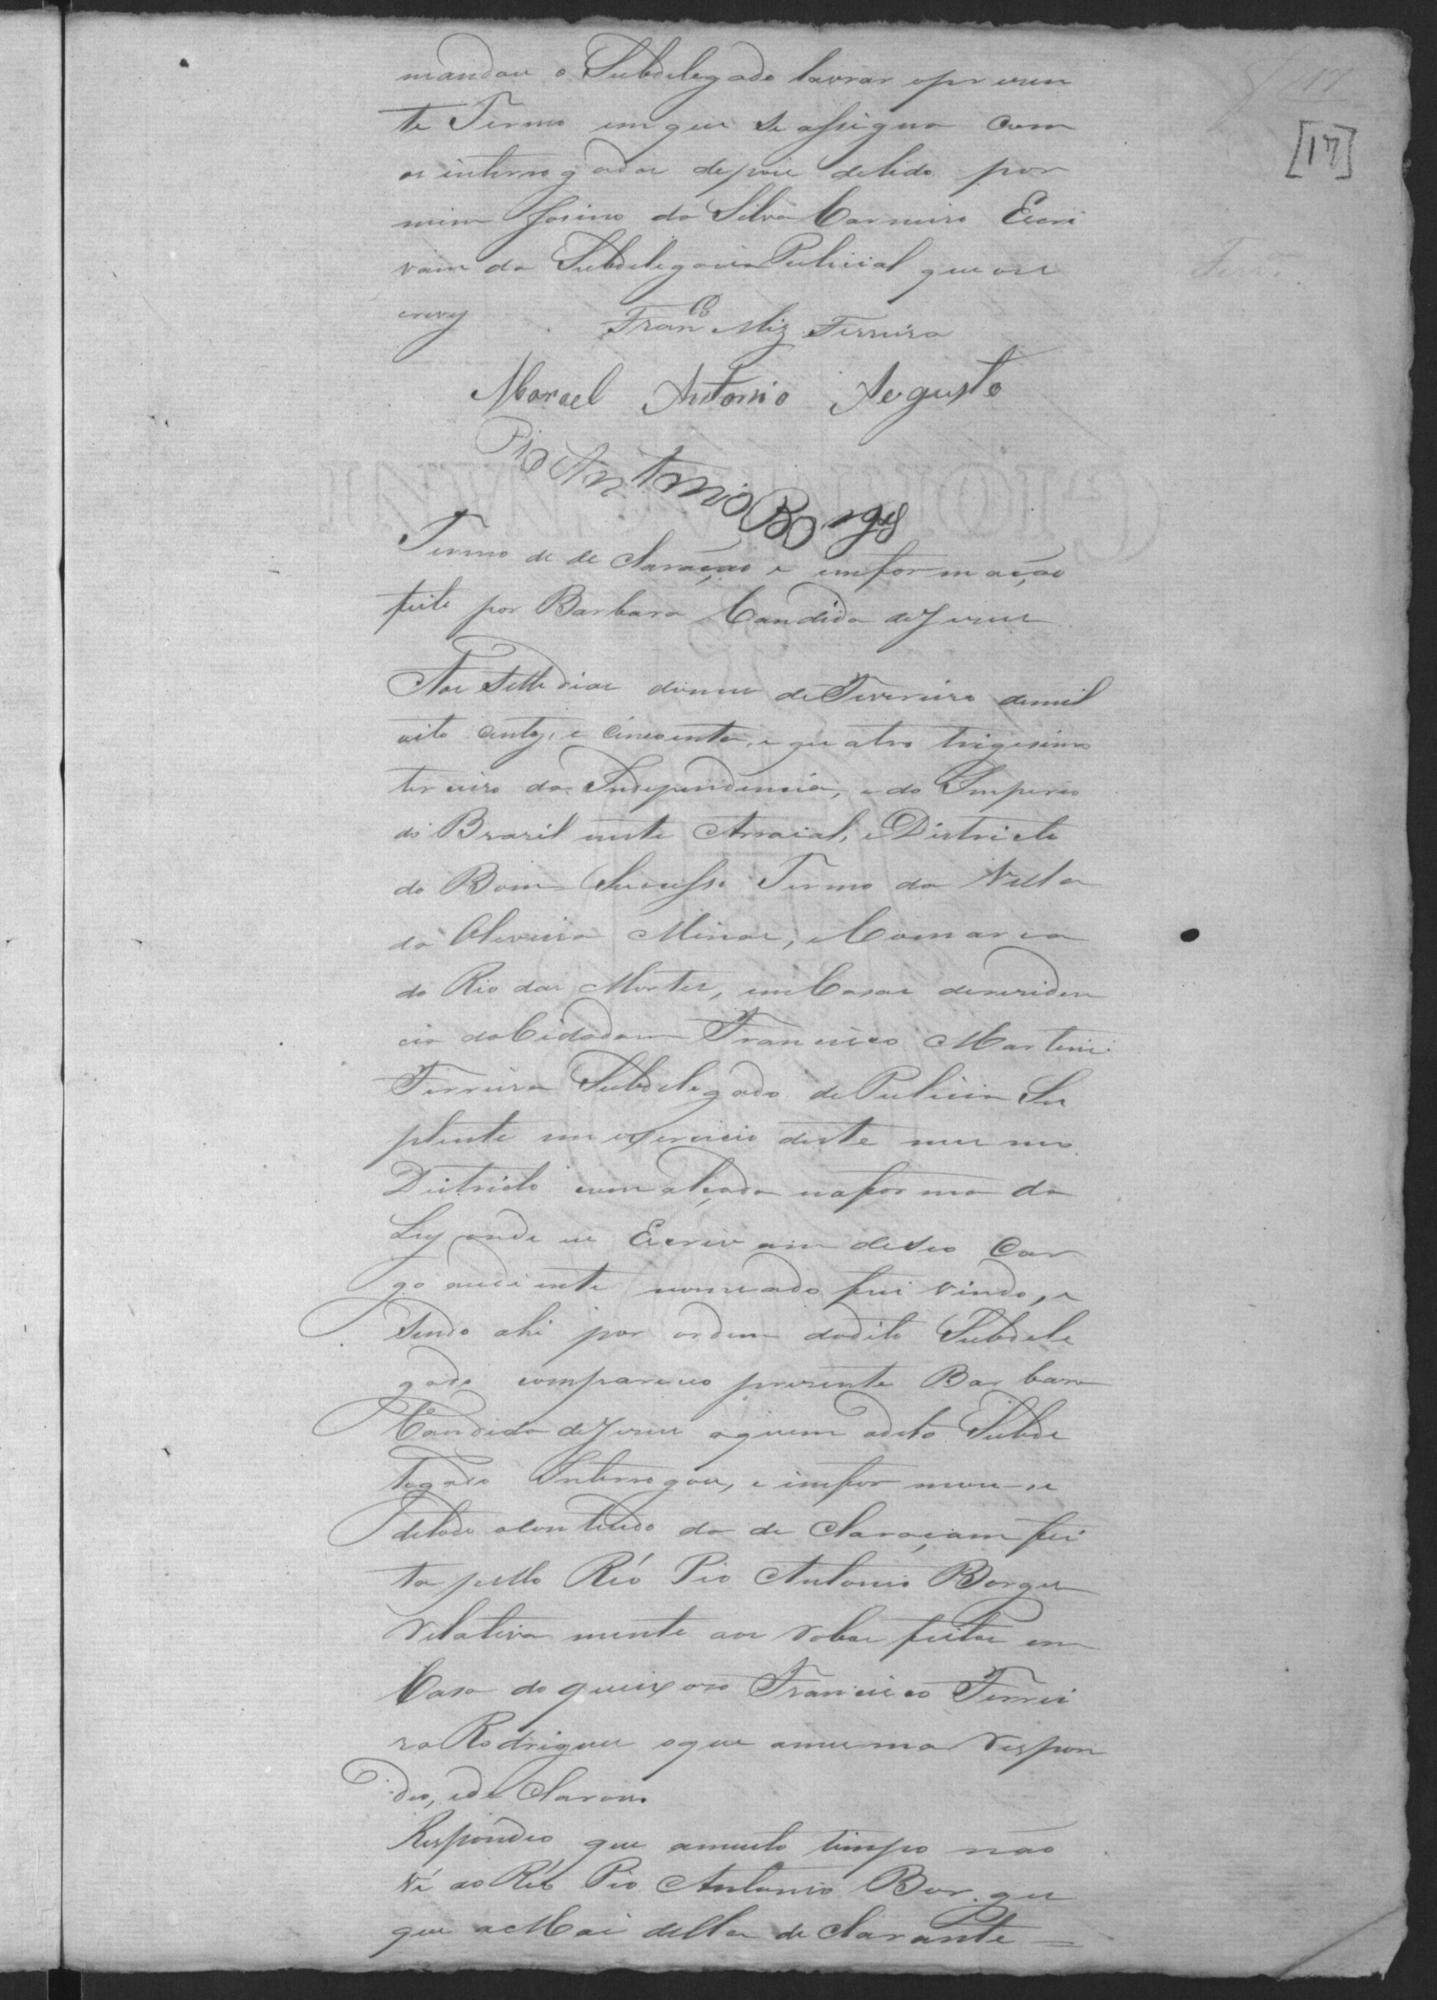 17
[17]
mandou o Subdelegado lavrar o presen
te Termo em que se assigna com
os interrogados depois de lido por
mim da Silva Carneiro Escri
vam da Subdelegacia Pulicial que o es
crevy
Franco Miz Ferreira
Manoel Antonio Augusto
Pio Antonio Borges
Termo de de claração e imformação
feito por Barbara Candida de Jesus
Aos sette dias do mes de Fevereiro de mil
oito centos, e cincoenta, e quatro trigesimo
terceiro da Independencia, e do Imperio
do Brazil neste Arraial, e Districto
do Bom Sucesso Termo da Villa
da Oliveira Minas, e Comarca
do Rio das Mortes, em Casas de residen
cia do Cidadam Francisco Martins
Ferreira Subdelegado de Pulicia Su
plente em exercicio deste mesmo
Districto com alçada na forma da
Ley onde eu Escrivam de seo Car
go audiente nomeado fui vindo, e
sendo ahi por ordem do dito Subdele
gado compareceo prezente Barbara
Candida de Jesus a quem o dito Subde
legado Interrogou, e imformou-se
de todo o contheudo da de claraçam fei
ta pello Réo Pio Antonio Borges
relativa mente aos robos feitos em
Casa do queixoso Francisco Ferrei
ra Rodrigues o que a mesma respon
deo, e de clarou.
Respondeo que a muito tempo não
vê ao Réo Pio Antonio Borges
que a Mai della de clarante =